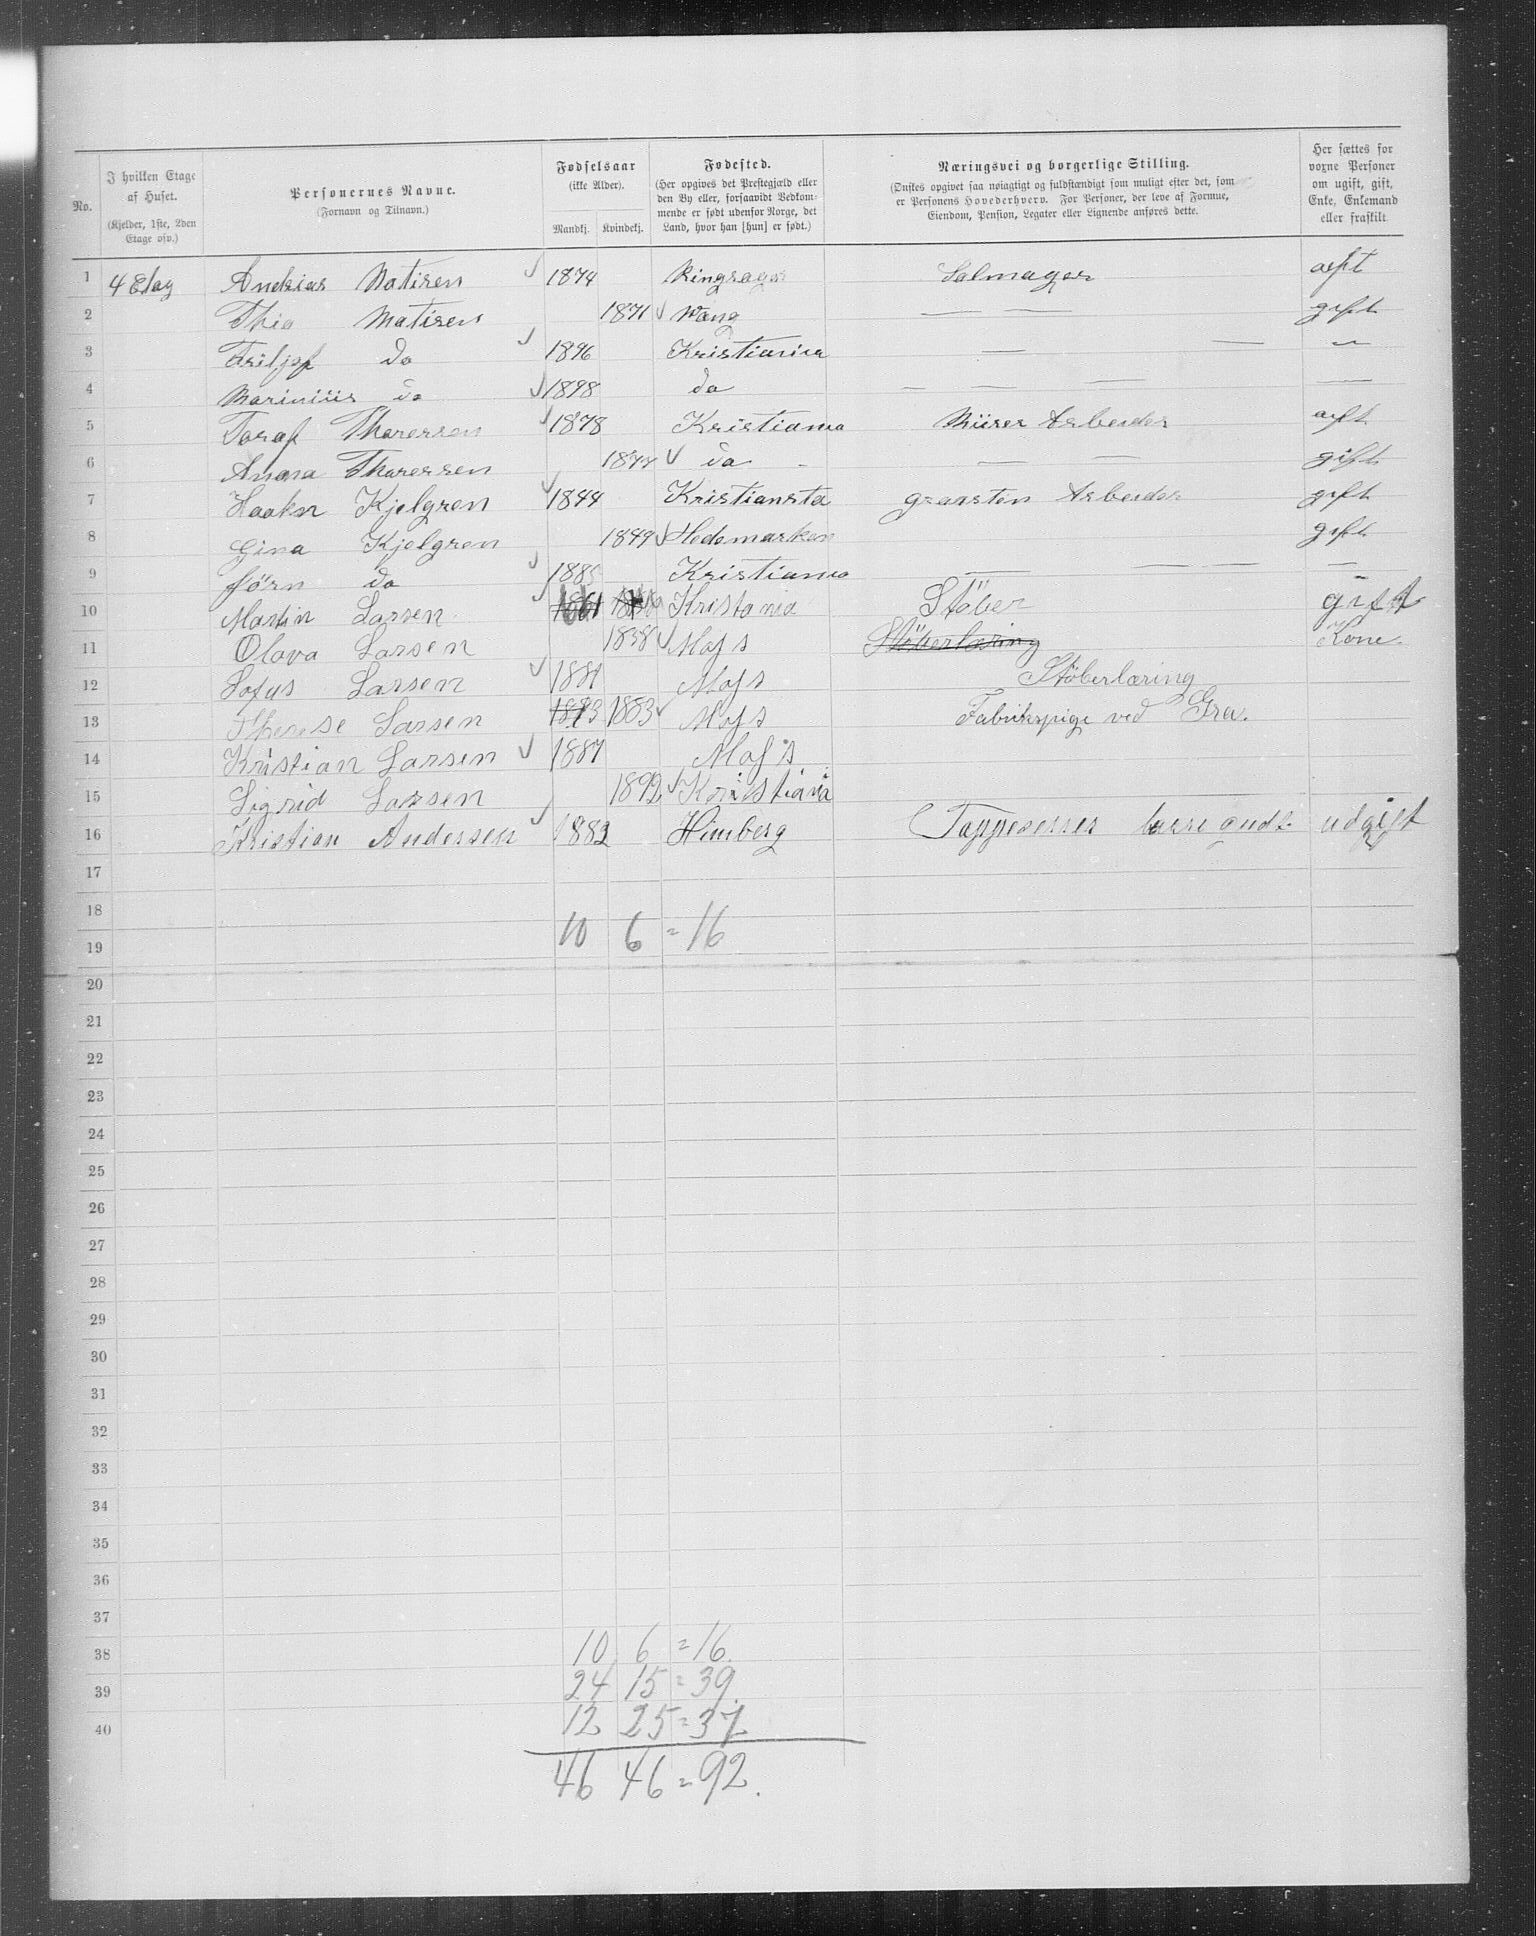 No.
I hvilken Etage af Huset.
(Kjelder, 1ste, 2den Etage osv.)
Personernes Navne.
(Fornavn og Tilnavn.)
Fødselsaar
(ikke Alder).
Mandkj. Kvindekj.
Fødested.
(Her opgives det Prestegjæld eller den By eller, forsaavidt Vedkommende er født udenfor Norge, det Land, hvor han [hun] er født.)
Næringsvei og borgerlige Stilling.
(Ønskes opgivet saa nøiagtigt og fuldstændigt som muligt efter det, som er Personens Hovederhverv. For Personer, der leve af Formue, Eiendom, Pension, Legater eller Lignende anføres dette.
Her sættes for voxne Personer om ugift, gift, Enke, Enkemand eller fraskilt.
1 4 Etag Andrias Matisen 1874 Ringsager Salmager
2 Thia Matisen 1871 Wang — — gift
3 Do 1896 Kristiania — —
4 Mariniüs do 1898 do — — — —
5 Toraf Thoressen 1878 Kristiania Mürer Arbeider
6 Anna Thoressen do — — gift
7 Haakn Kjelgren 1844 Kristiansta graasten Arbeider gift
8 Gina Kjelgren 1849 Hedemarken gift
9 Jörn do 1885 Kristiania — — — —
10 Martin Larsen 1861 Kristania Stöber gift
11 Olava Larsen 1858 Mojs Stöberlæring Kone
12 Sofus Larsen 1881 Mojs Stöberlæring
13 Therese Larsen 1883 1883 Mojs Fabrikspige ved Gra.
14 Kristian Larsen 1887 Mojs
15 Sigrid Larsen 1892 Kristiania
16 Kristian Andersen 1882 Himberg udgift
17
18
10 6 = 16
19
20
21
22
23
24
25
26
27
28
29
30
31
32
33
34
35
36
37
38 10 6 = 16.
39 24 15 = 39
40 12 25 = 37
46 46 = 92.